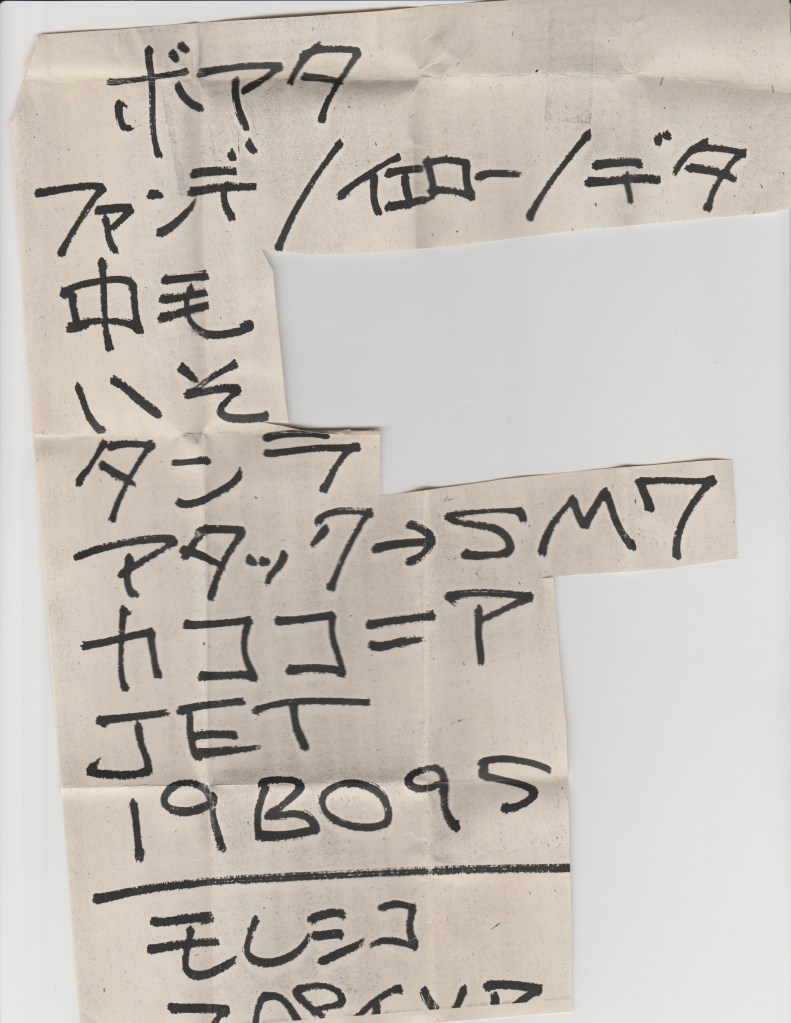 ボアタ
ファンデ/イエロー/デタ
中毛
いそ
タンラ
アタック→SM7
カココニア
JET
19B095
モレシコ